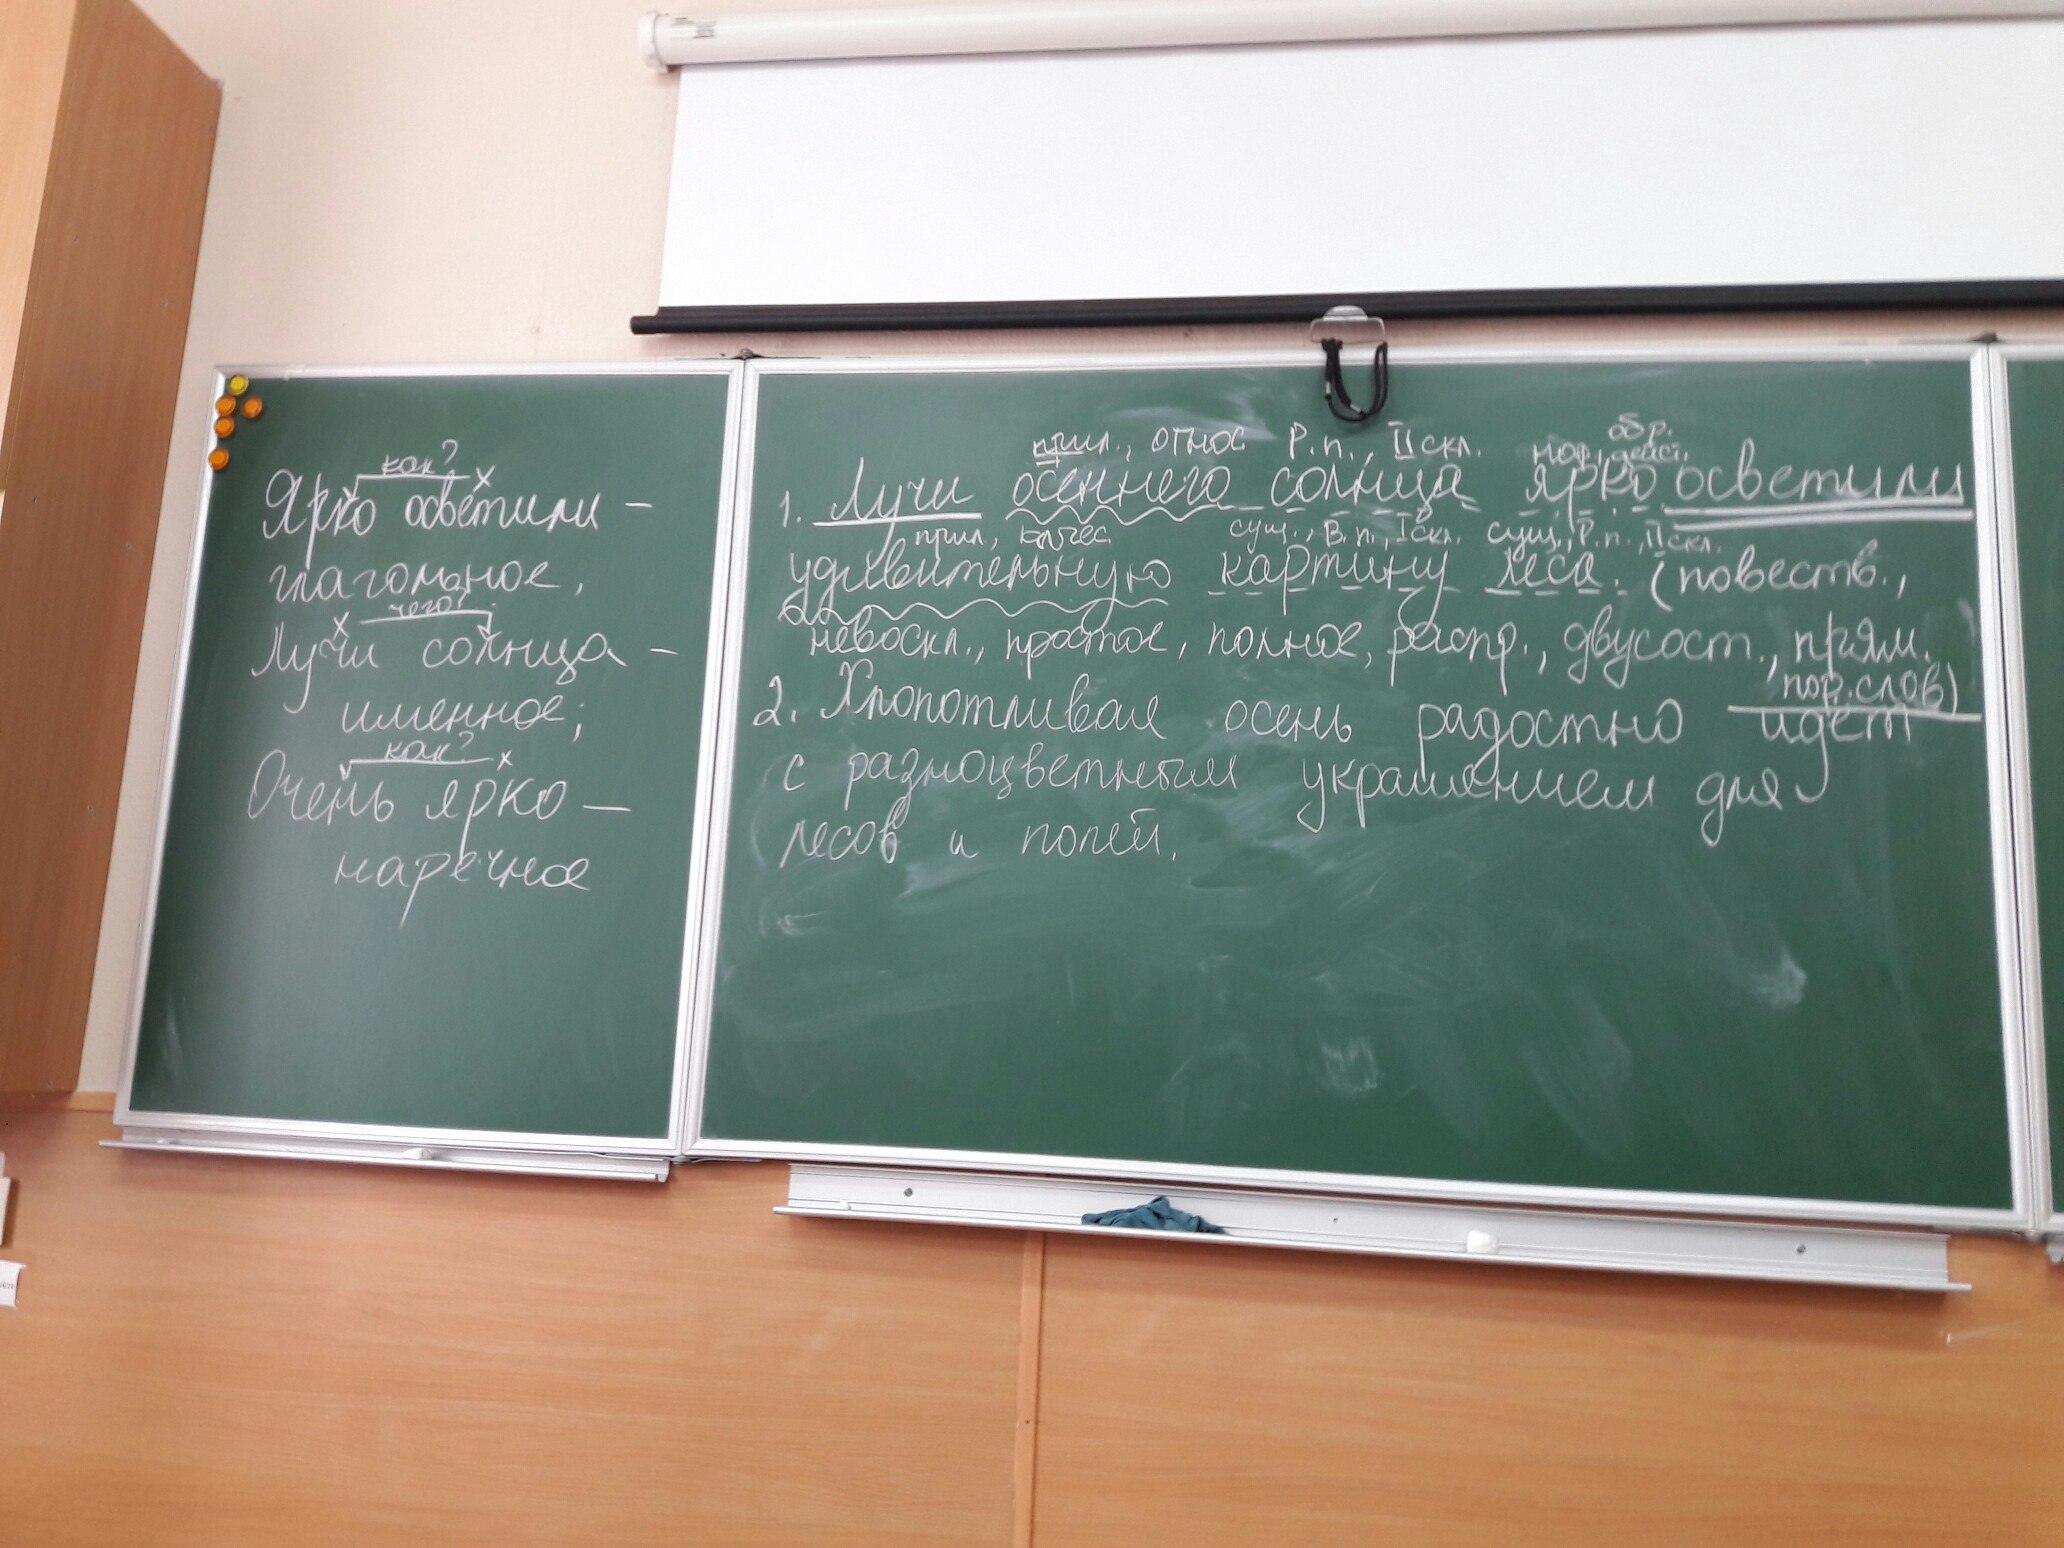 как?
Ярко осветили –
глагольное,
чего?
Лучи солнца –
именное;
как?
Очень ярко –
наречное
обр.
прил., относ Р.п., II скл. нар., дейст.
1. Лучи осеннего солнца ярко осветили
прил., качес. сущ., В.п., I скл. сущ., Р.п., II скл.
удивительную картину леса. (повеств.,
невоскл., простое, полное, распр., двусост., прям.
пор. слов)
2. Хлопотливая осень радостно идёт
с разноцветным украшением для
лесов и полей.